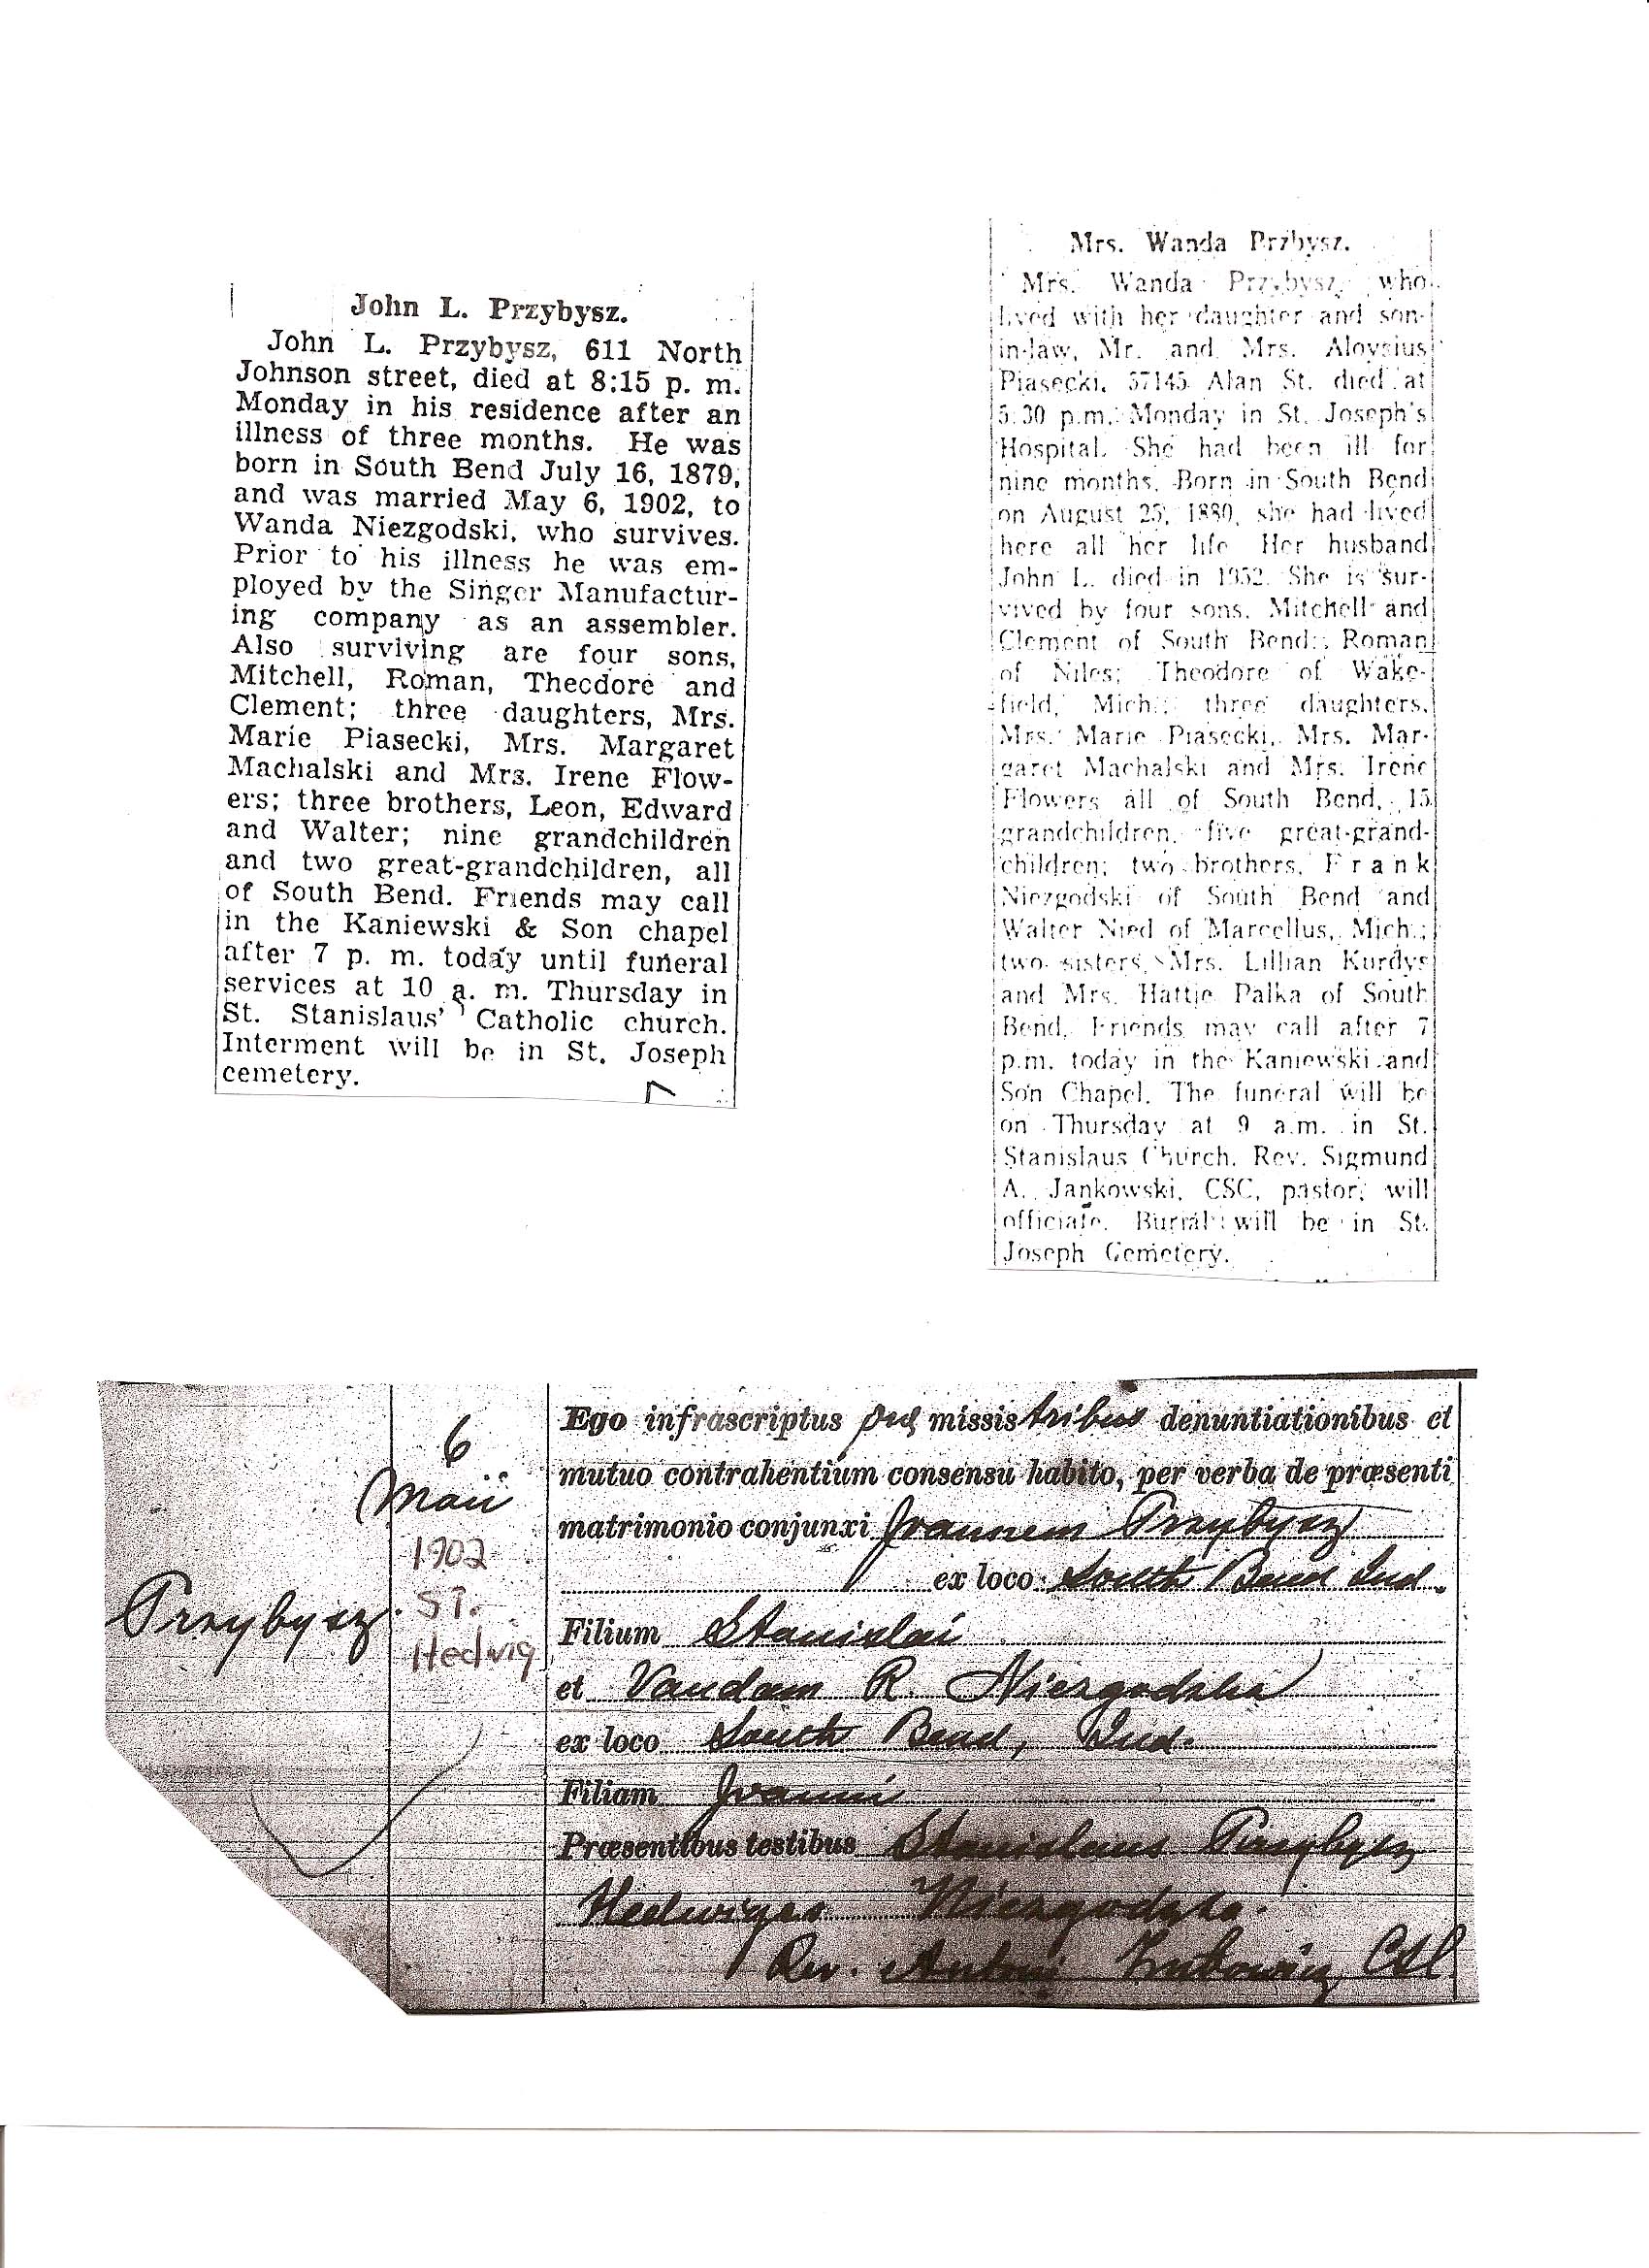 John L. Przybysz.
John L. Przybysz, 611 North
Johnson street, died at 8:15 p. m.
Monday in his residence after an
illness of three months. He was
born in South Bend July 16, 1879,
and was married May 6, 1902, to
Wanda Niezgodski, who survives.
Prior to his illness he was em-
ployed by the Singer Manufactur-
ing company as an assembler.
Also surviving are four sons,
Mitchell, Roman, Theodore and
Clement; three daughters, Mrs.
Marie Piasecki, Mrs. Margaret
Machalski and Mrs. Irene Flow-
ers; three brothers, Leon, Edward
and Walter; nine grandchildren
and two great-grandchildren, all
of South Bend. Friends may call
in the Kaniewski & Son chapel
after 7 p. m. today until funeral
services at 10 a. m. Thursday in
St. Stanislaus' Catholic church.
Interment will be in St. Joseph
cemetery.
Mrs. Wanda Przbysz.
Mrs. Wanda Przybysz, who
lived with her daughter and son-
in-law, Mr. and Mrs. Aloysius
Piasecki, 57145 Alan St. died at
5:30 p.m. Monday in St. Joseph's
Hospital. She had been ill for
nine months. Born in South Bend
on August 25, 1880, she had lived
here all her life. Her husband
John L. died in 1952. She is sur-
vived by four sons, Mitchell and
Clement of South Bend; Roman
of Niles; Theodore of Wake-
field, Mich.; three daughters,
Mrs. Marie Piasecki, Mrs. Mar-
garet Machalski and Mrs. Irene
Flowers all of South Bend, 15
grandchildren, five great-grand-
children; two brothers, Frank
Niezgodski of South Bend and
Walter Nied of Marcellus, Mich.;
two sisters, Mrs. Lillian Kurdys
and Mrs. Hattie Palka of South
Bend. Friends may call after 7
p.m. today in the Kaniewski and
Son Chapel. The funeral will be
on Thursday at 9 a.m. in St.
Stanislaus Church. Rev. Sigmund
A. Jankowski, CSC, pastor, will
officiate. Burial will be in St.
Joseph Cemetery.
6
Maii
1902
St.
Hedwig
Przybysz.
Ego infrascriptus præ missis tribus denuntiationibus et
mutuo contrahentium consensu habito, per verba de præsenti
matrimonio conjunxi Joannem Przybysz
ex loco South Bend Ind.
Filium Stanislai
et Vandam R. Niezgodska
ex loco South Bend, Ind.
Filiam Joanni
Præsentibus testibus Stanislaus Przybysz
Hedwiges Niezgodska.
Rev. Antoni Zubowicz CSC